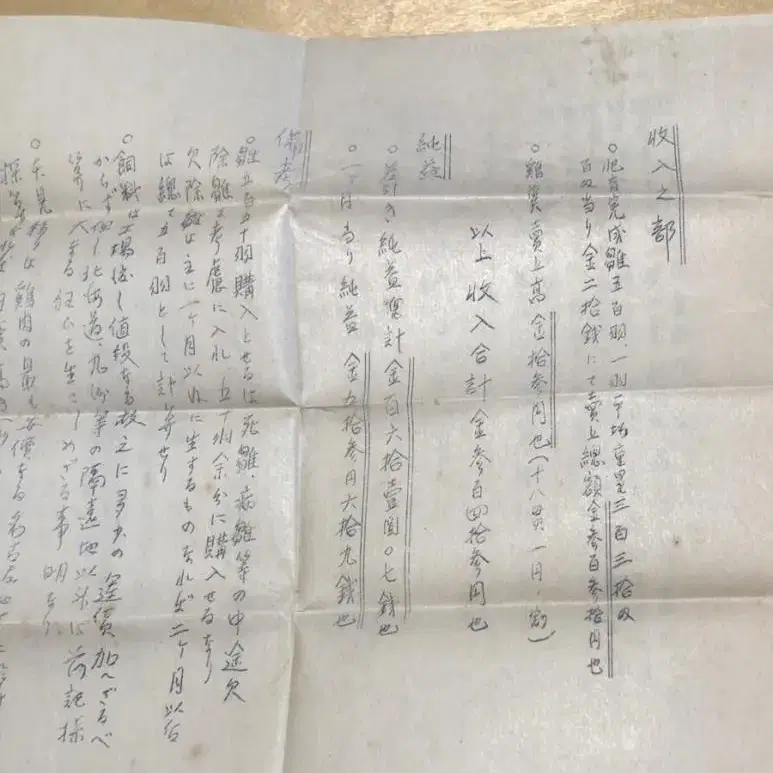 收入之部
○肥育完成雛五百羽、一羽平均重量三百三拾匁
百匁当り金二拾銭にて賣上總額金参百参拾円也
○鷄糞賣上高金拾参円也(十八貫一円ノ割)
以上收入合計金参百四拾参円也
純益
○差引純益累計金百六拾壹圓〇七銭也
○一ヶ月当り純益 金五拾参円六拾九銭也
備考
○雛五百五十羽購入とせるは死雛、病雛等の中途欠
除雛を考慮に入れ、五十羽余分に購入せるなり
欠除雛は主に一ヶ月以内に生ずるものなれば二ヶ月以后
は總て五百羽として計算せり
○飼料は工場渡し値段なる故之に多少の運賃加へざるべ
からず但し北海道、九州等の隔遠地以外は前記様
算に大なる狂ひを生ぜしめざる事明なり
○鷄肉の最も安價なる名古屋